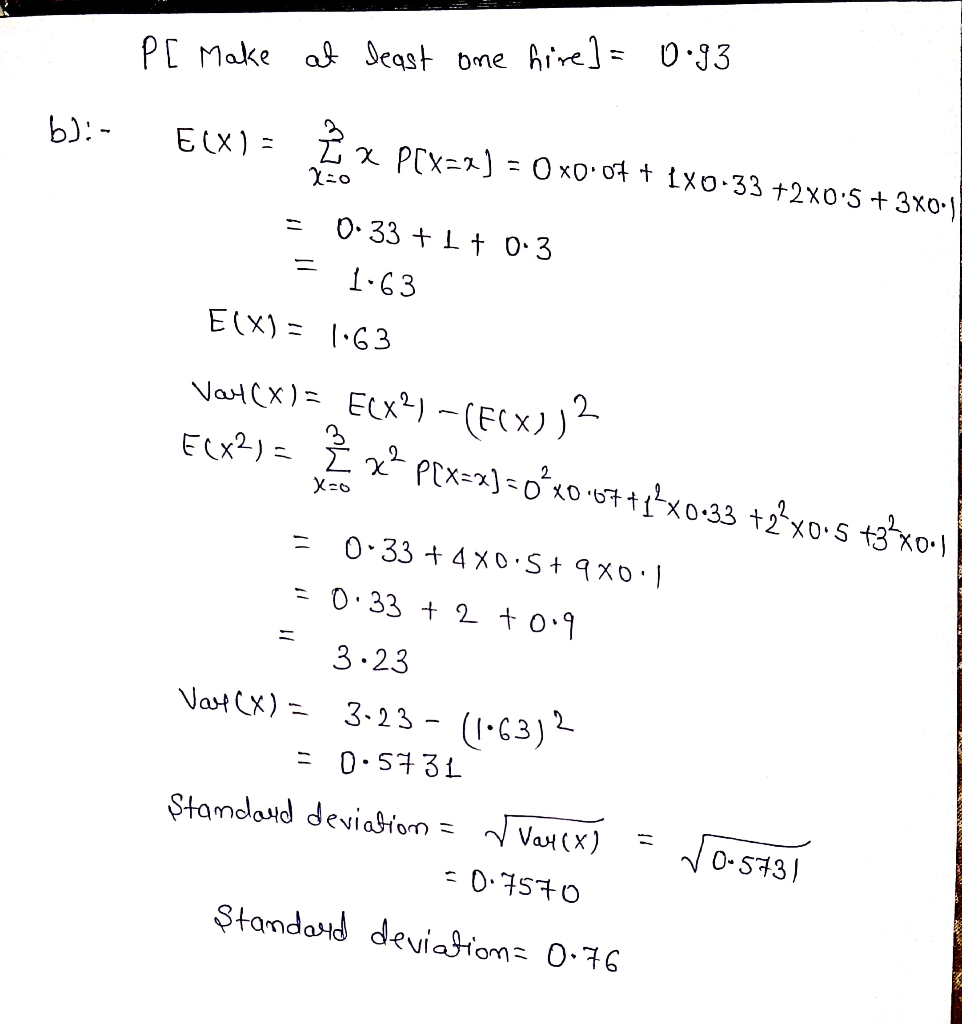 P[ Make at least one hire] = 0.93
b):- E(X) = 3 Σ x=0 x P[X=x] = 0x0.07 + 1x0.33 +2x0.5 + 3x0.1
= 0.33 + 1 + 0.3
= 1.63
E(X) = 1.63
Var(X) = E(X²) - (E(X))²
E(X²) = 3 Σ x=0 x² P[X=x] = 0²x0.07 + 1²x0.33 +2²x0.5 +3²x0.1
= 0.33 + 4x0.5 + 9x0.1
= 0.33 + 2 + 0.9
= 3.23
Var(X) = 3.23 - (1.63)²
= 0.5731
Standard deviation = √Var(X) = √0.5731
= 0.7570
Standard deviation = 0.76